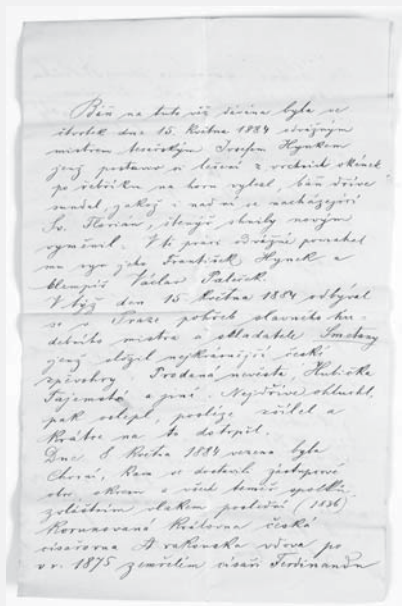 Báň na tuto věž dávána byla ve
čtvrtek dne 15. května 1884 odvážným
mistrem tesařským Josefem Hynkem
jenž postaviv si lešení z vrchních okének
po žebříku na horu vylezl, báň dříve
sundal, jakož i nad ní se nacházející
Sv. Florián, shnilý novým
vyměnil. V té práci odvážné pomáhal
mu syn jeho František Hynek a
klempíř Václav
V týž den 15. května 1884 odbýval
se v Praze pohřeb slavného hu-
debního mistra a skladatele Smetany
jenž složil nejkrásnější české
zpěvohry. Prodaná nevěsta, Hubička
Tajemství a jiné. Nejdříve ohluchl,
pak oslepl, posléze zšílel a
krátce na to dotrpěl.
Dne 8 května 1884 vezena byla
kam se dostavili zástupcové
a všech téměř spolků,
zvláštním vlakem poslední (1836)
korunovaná královna česká
císařovna A rakouská vdova po
v r. 1875 zemřelém císaři Ferdinandu